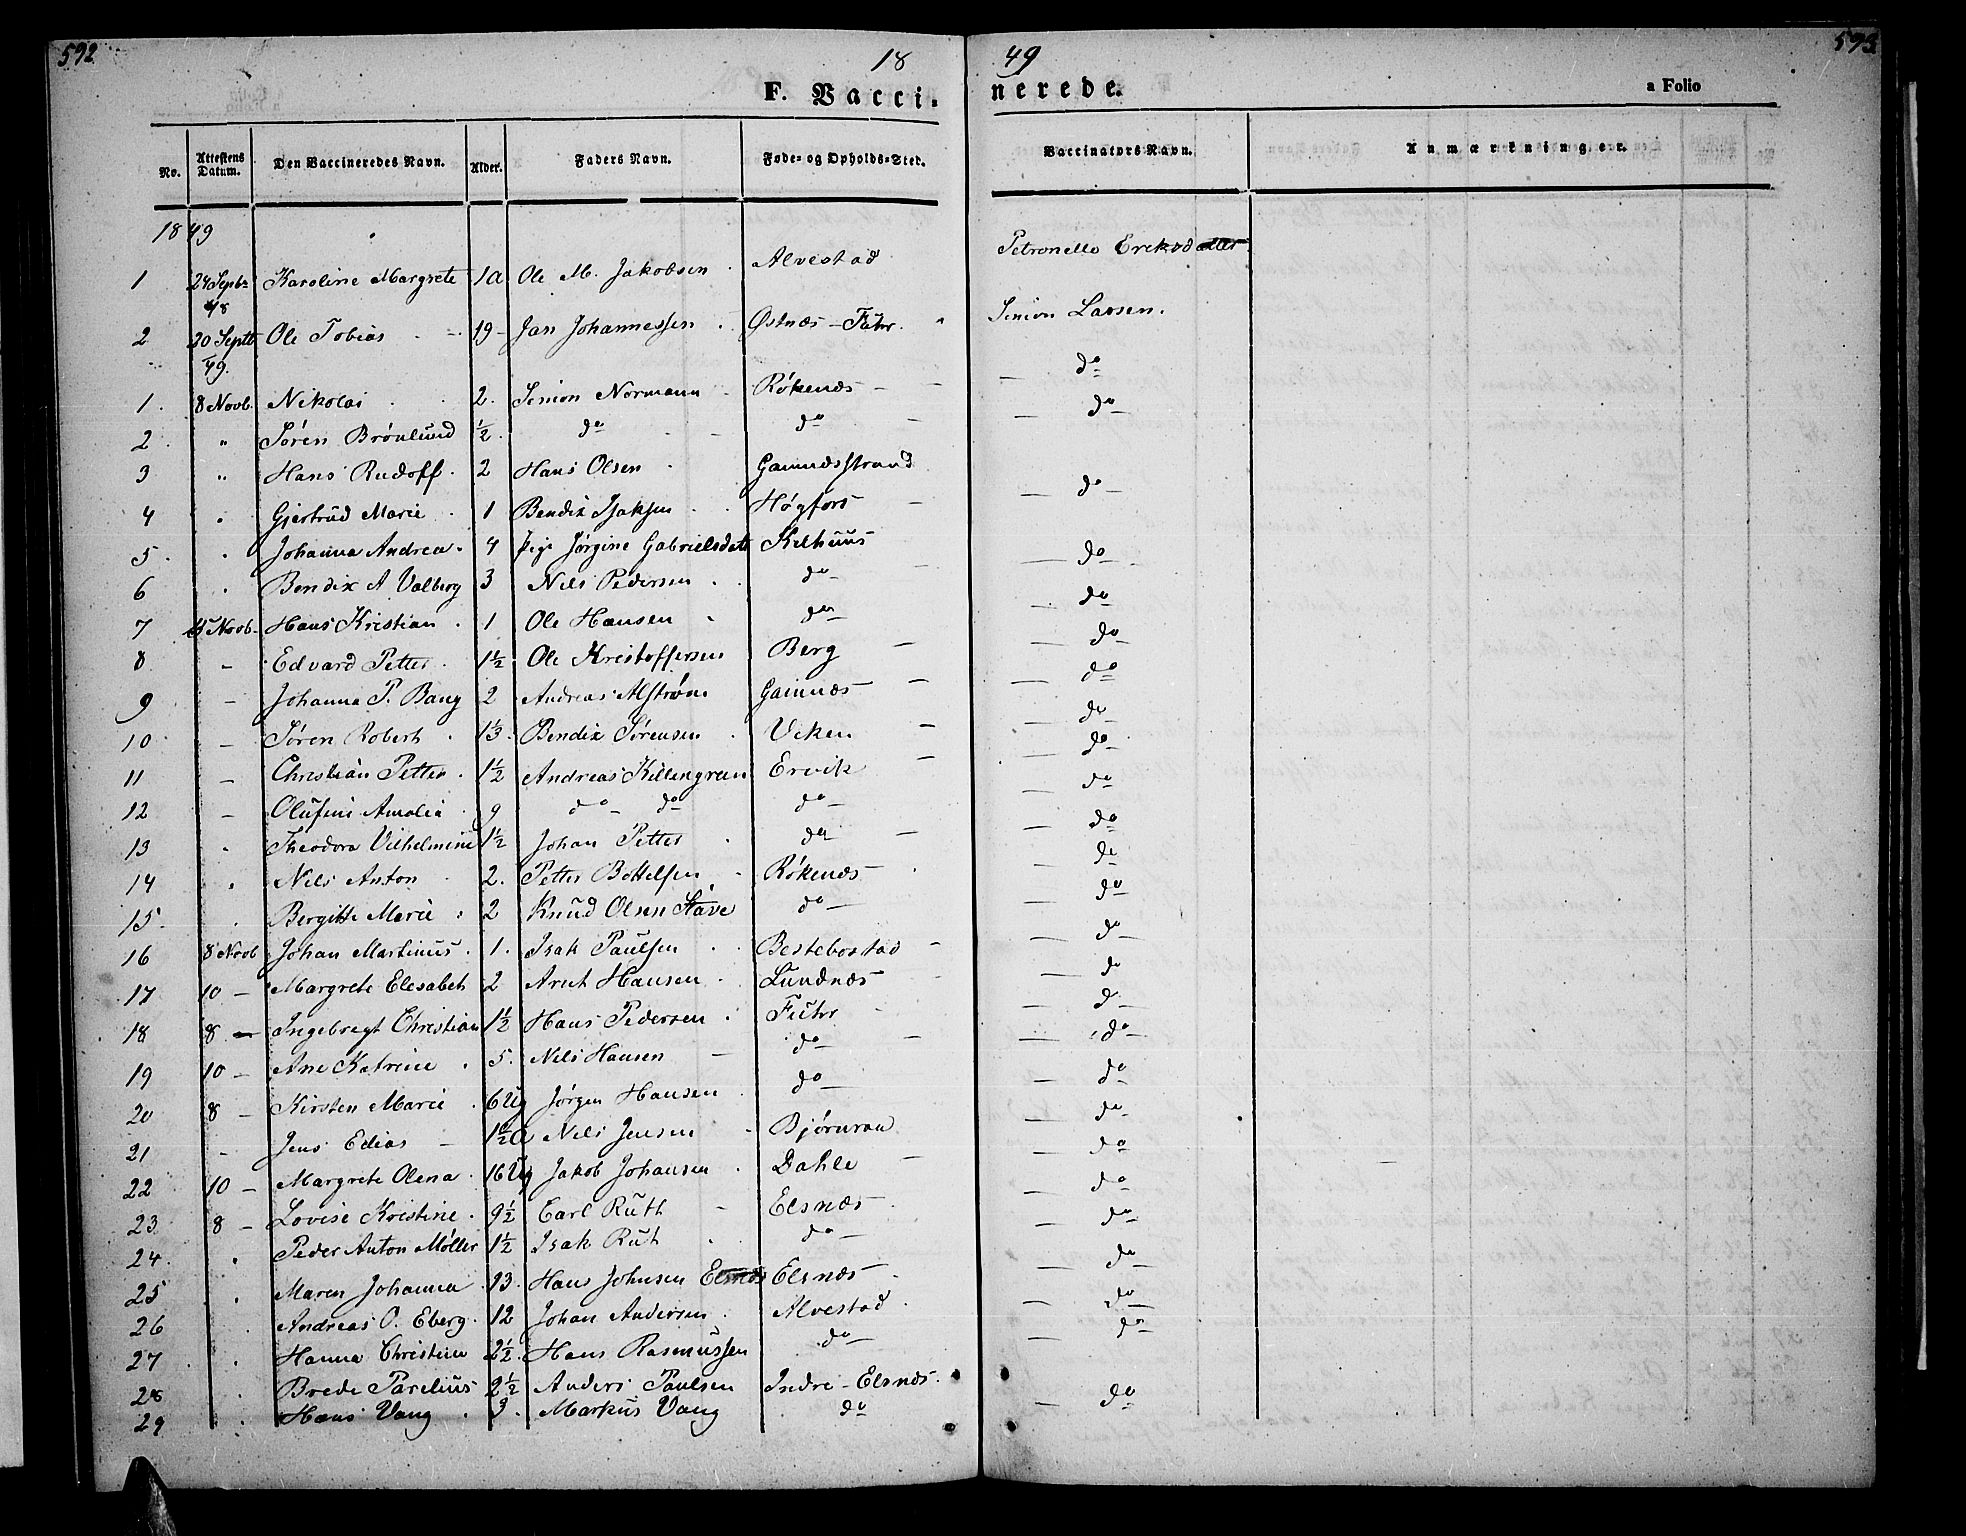 592
18 49
593
F. Vacci- nerede.
a Folio
No. Attestens Datum. Den Vaccineredes Navn. Alder. Faders Navn. Føde- og Opholds-Sted. Vaccinators Navn. Anmærkninger.
1849
1 24 Septbr 48 Karoline Margrete 1a Ole M. Jakobsen Alvestad Petronelle Ereksdatter
2 20 Septb 49. Ole Tobias 19 Jan Johannessen Østnæs - Fuhr. Simon Larsen.
1. 8 Novb. Nikolai 2. Simon Normann Rökenæs do
2. " Søren Brönlund ½ do do do
3 " Hans Rudoff 2 Hans Olsen Gamnesstrand
4 " Gjertrud Marie 1 Bendix Isaksen Høgfors do
5. " Johanna Andrea 4 Pige Jørgine Gabrielsdatt Kilhuus do
6 " Bendix A Valberg 3 Nils Pedersen do do
7 15 Novb. Hans Kristian 1 Ole Hansen do do
8 - Edvard Petter 1½ Ole Kristoffersen Berg do
9 - Johanna P. Bang 2 Andreas Alstrøm Gamnæs do
10 - Søren Robert 1⅓ Bendix Sørensen Viken do
11 - Christian Petter 1½ Andreas Killengreen Ervik do
12 - Olufine Amalia 9 do do do do
13 " Theodora Vilhelmine 1½ Johan Petter do do
14 " Nils Anton 2. Petter Bottelsen Rökenæs do
15. " Bergitte Marie 2 Knud Olsen Stave do do
16 8 Novb Johan Martinus 1. Isak Paulsen Bestebostad do
17 10 - Margrete Elesabet 2 Arnt Hansen Lundnæs do
18 8 - Ingebregt Christian 1½ Hans Pedersen Fuhr do
19 10 - Ane Katrine 5. Nils Hansen do do
20 8 - Kirsten Marie 6 Ug Jørgen Hansen do do
21 - Jens Edias 1½a Nils Jensen Bjørnraa do
22 10 - Margrete Olena 16 Ug Jakob Johansen Dahle do
23 8 - Lovise Kristine 9½ Carl Ruth Elsnæs do
24. " Peder Anton Møller 1½ Isak Rut do do
25 " Maren Johanna 13. Hans Johnsen Elsnæs Elsnæs do
26 " Andreas O. Eberg 12 Johan Andersen Alvestad do
27 " Hanna Christine 2½ Hans Rasmussen do do
28 " Brede Parelius 2½ Anders Paulsen Indre - Elsnæs.
29 " Hans Vang 3. Markus Vang do do